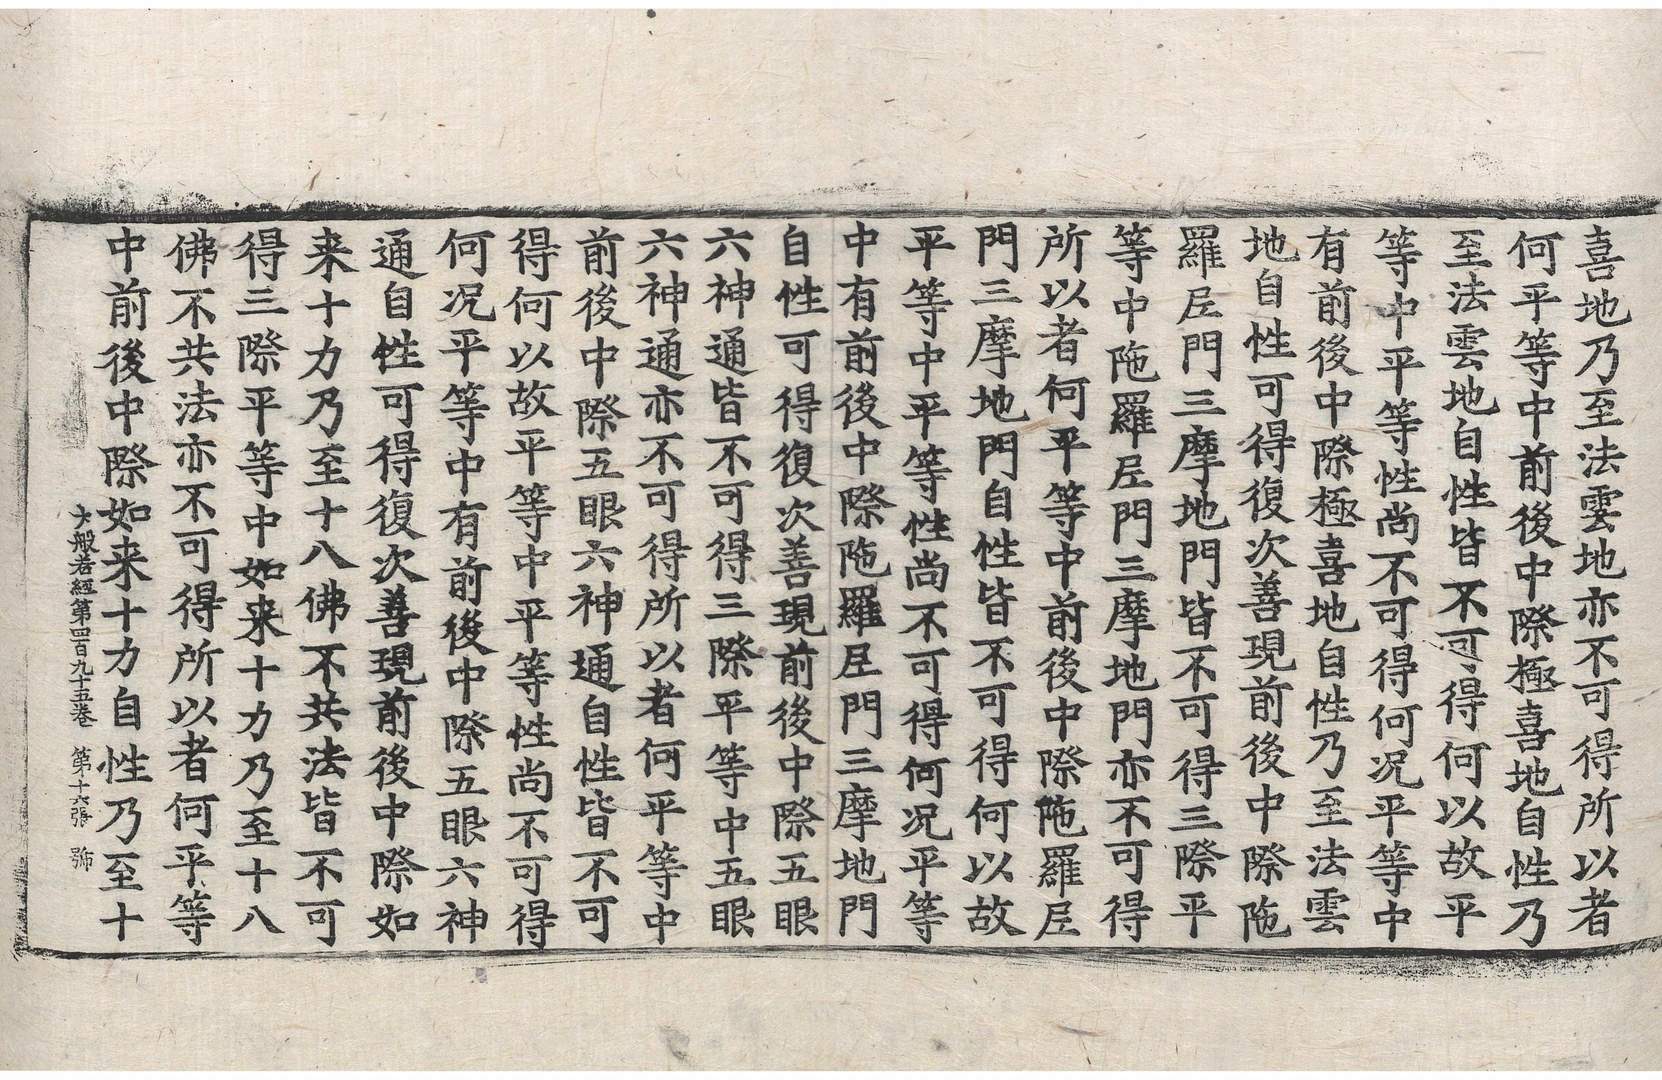 喜地乃至法雲地亦不可得所以者
何平等中前後中際極喜地自性乃
至法雲地自性皆不可得何以故平
等中平等性尚不可得何况平等中
有前後中際極喜地自性乃至法雲
地自性可得復次善現前後中際陁
羅𡰱門三摩地門皆不可得三際平
等中陁羅𡰱門三摩地門亦不可得
所以者何平等中前後中際陁羅𡰱
門三摩地門自性皆不可得何以故
平等中平等性尚不可得何况平等
中有前後中際陁羅𡰱門三摩地門
自性可得復次善現前後中際五眼
六神通皆不可得三際平等中五眼
六神通亦不可得所以者何平等中
前後中際五眼六神通自性皆不可
得何以故平等中平等性尚不可得
何况平等中有前後中際五眼六神
通自性可得復次善現前後中際如
来十力乃至十八佛不共法皆不可
得三際平等中如来十力乃至十八
佛不共法亦不可得所以者何平等
中前後中際如来十力自性乃至十
大般若經第四百九十五卷 第十六張 號